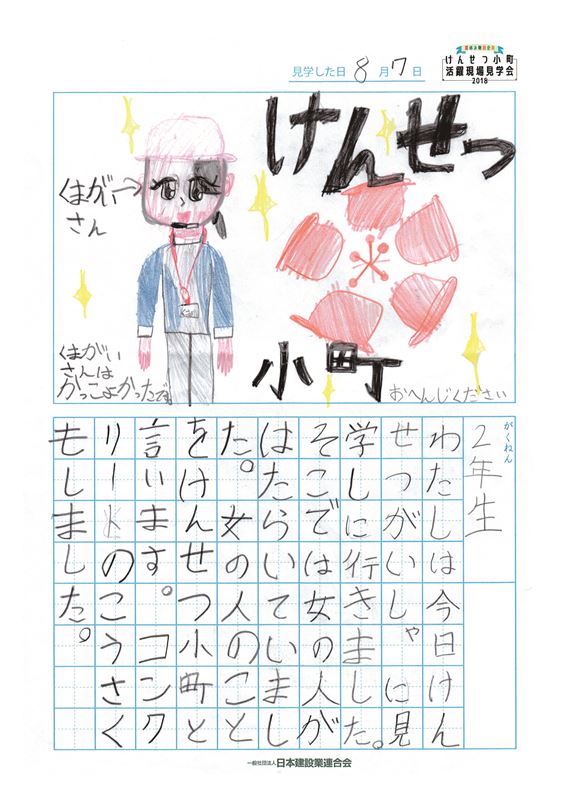 けんせつ小町
活躍現場見学会
2018
見学した日 8月7日
けんせつ
小町
くまがい→
さん
くまがい
さんは
かっこよかったです
おへんじください
がくねん
2年生
わたしは今日けん
せつがいしゃに見
学しに行きました。
そこでは女の人が
はたらいていまし
た。女の人のこと
をけんせつ小町と
言います。コンク
リートのこうさく
もしました。
一般社団法人 日本建設業連合会